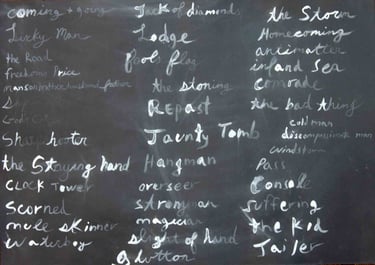 coming + going
Lucky Man
the Road
freedoms Price
man son brother husband father
Ship
Sharpshooter
the Staying hand
CLOCK TOWER
Scorned
mule skinner
Waterboy
Jack of diamonds
Lodge
fools flag
the stoning
Repast
Jaunty Tomb
Hangman
overseer
strongman
magician
slight of hand
Glutton
the Storm
Homecoming
antimatter
inland Sea
comrade
the bad thing
cold man
discompassionate man
windstorm
Pass
Console
suffering
the Kid
Jailer